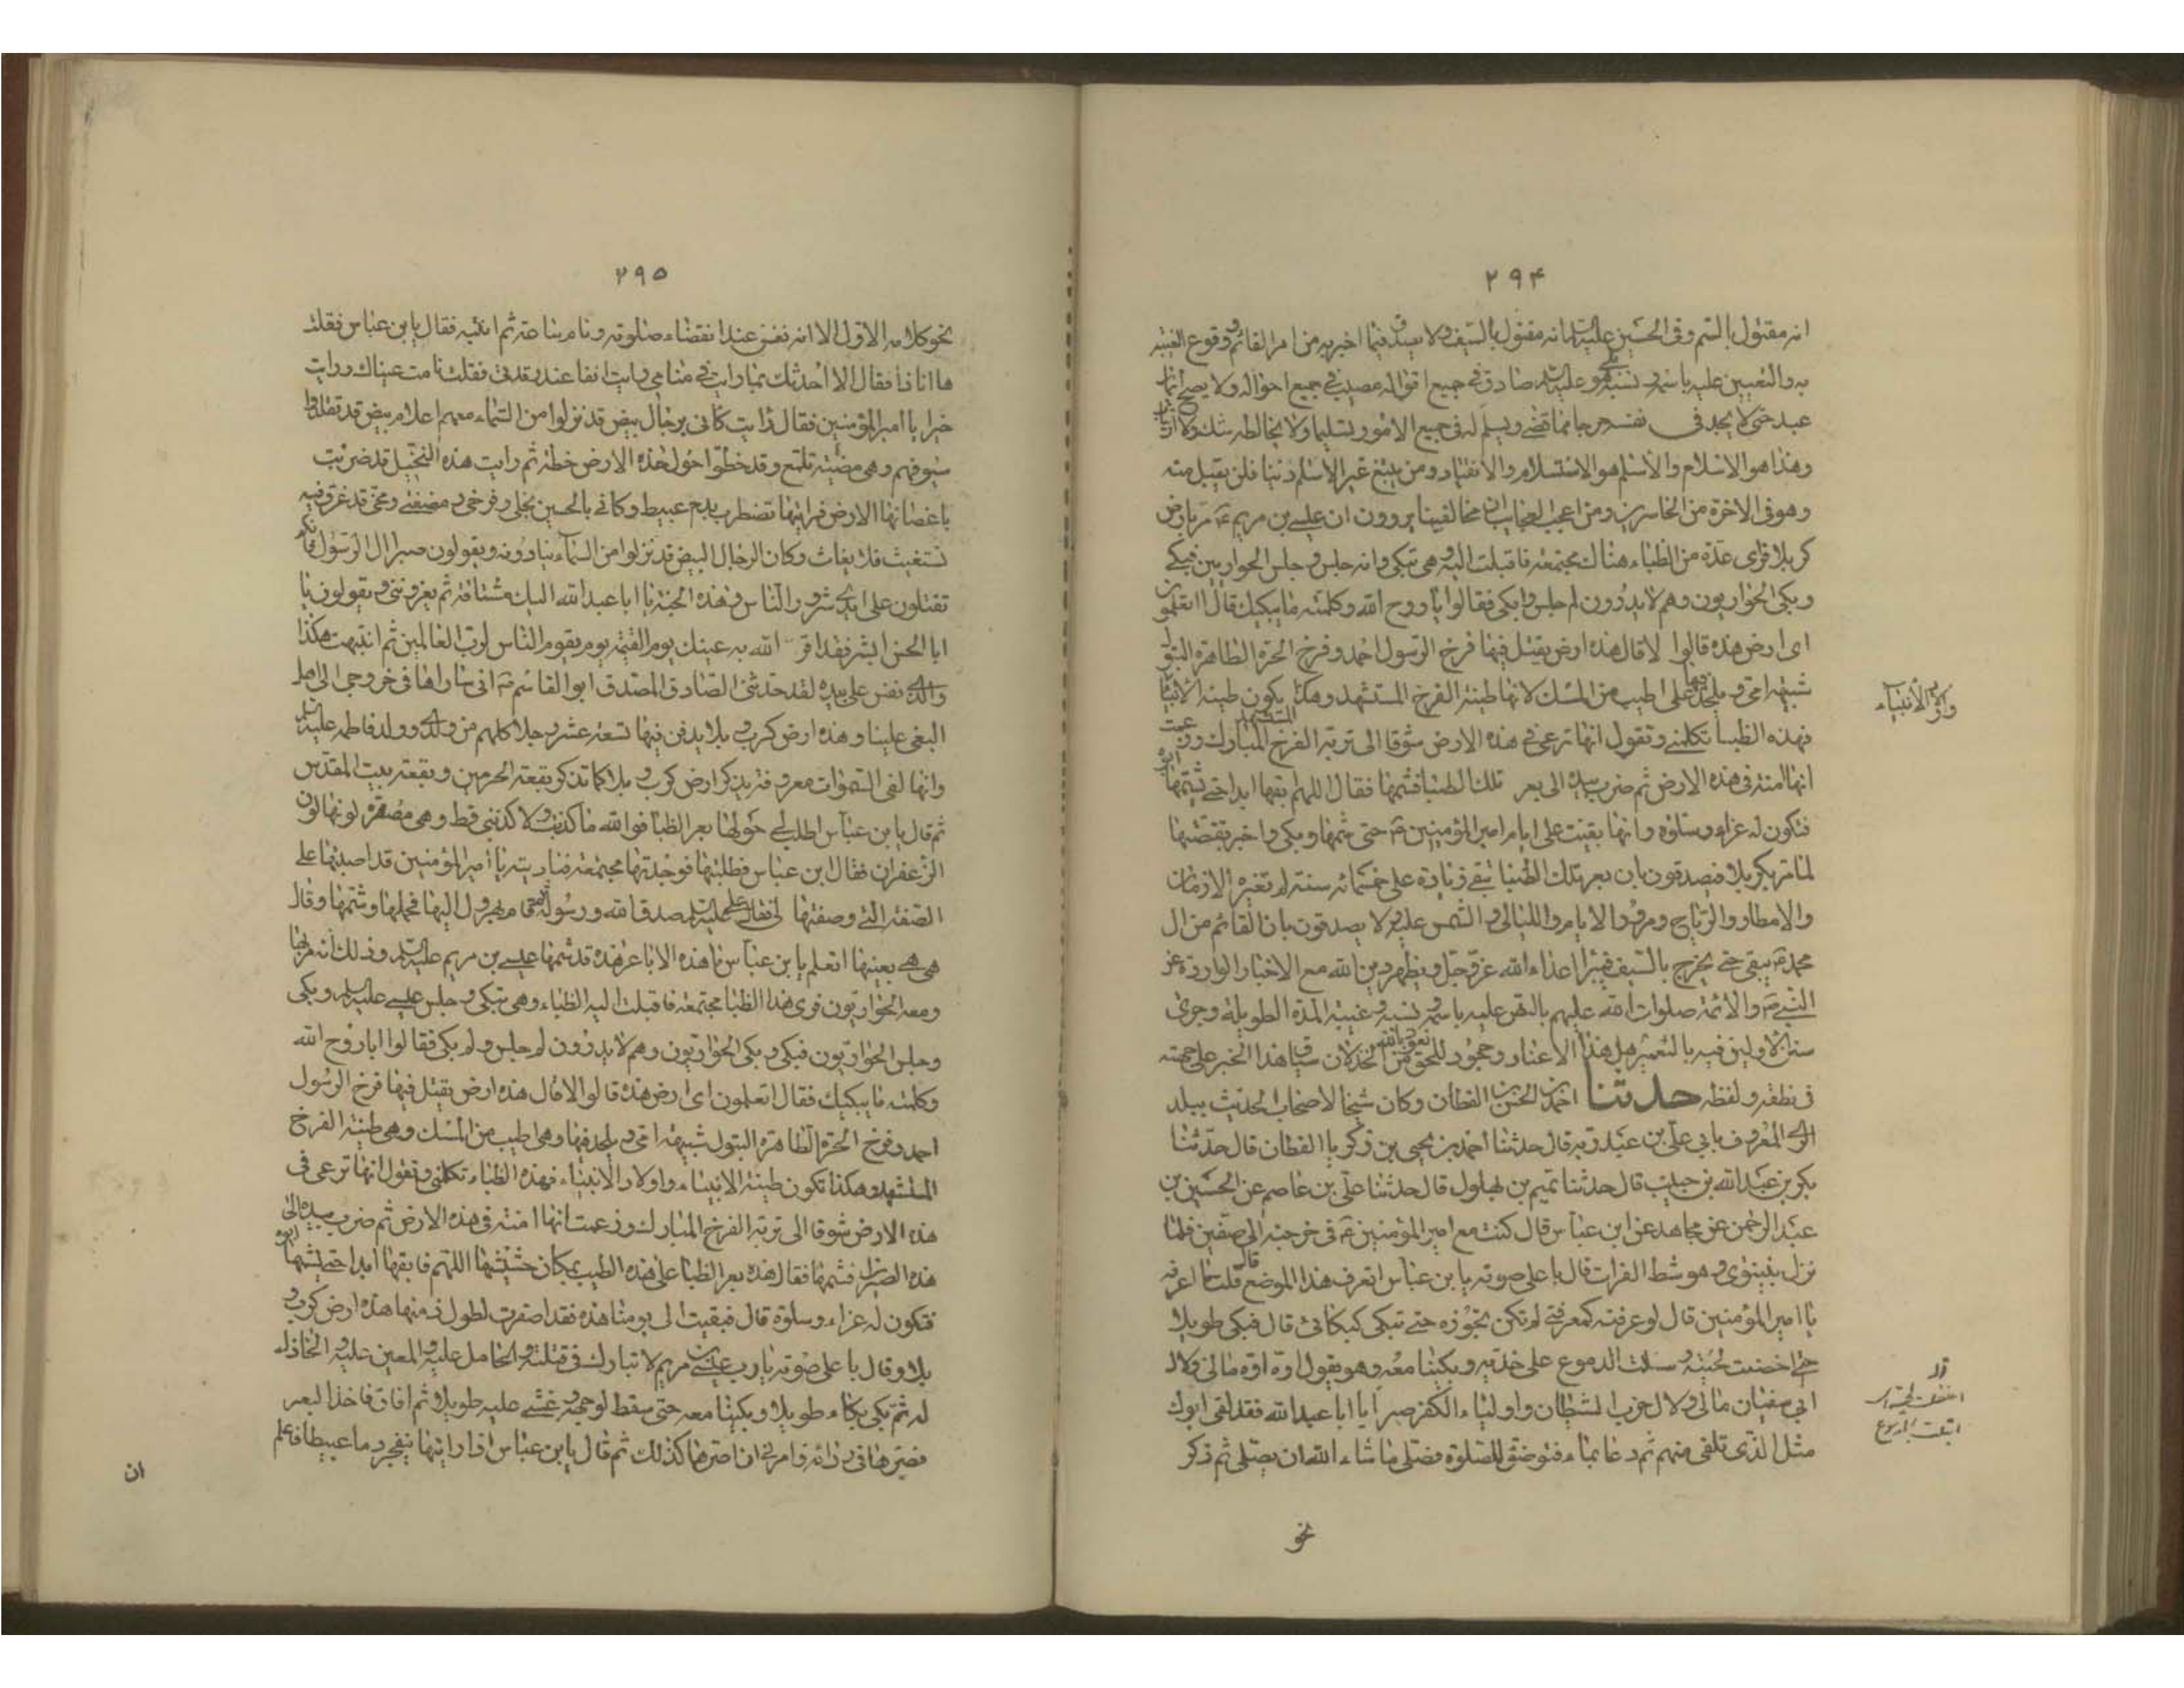 ۲۹۴
انه مقتول بالسم وفی الحسین علیه السلام انه مقتول بالسیف ولا یصدق فیما اخبر به من امر القائم ووقوع الغیبة
به والتعیین علیه باسمه ونسبه بلی هو علیه السلام صادق فی جمیع اقواله مصیب فی جمیع احواله ولا یصح ایمان
عبد حتی لا یجد فی نفسه حرجا مما قضی ویسلم له فی جمیع الامور تسلیما ولا یخالطه شك ولا ارتیاب
وهذا هو الاسلام والاسلام هو الاستسلام والانقیاد ومن یبتغ غیر الاسلام دینا فلن یقبل منه
وهو فی الاخرة من الخاسرین ومن اعجب العجایب ان مخالفینا یروون ان عیسی بن مریم ع مر بارض
کربلا فرای عدة من الظباء هناك مجتمعة فاقبلت الیه وهی تبکی وانه جلس وجلس الحواریین فبکی
وبکی الحواریون وهم لا یدرون لم جلس ولم بکی فقالوا یا روح الله وکلمته ما یبکیك قال اتعلمون
ای ارض هذه قالوا لا قال هذه ارض یقتل فیها فرخ الرسول احمد وفرخ الحرة الطاهرة البتول
شبیهة امی ویلحد فیها هی اطیب من المسك لانها طینة الفرخ المستشهد وهکذا یکون طینة الانبیاء
واولاد الانبیاء
فهذه الظبا تکلمنی وتقول انها ترعی فی هذه الارض شوقا الی تربة الفرخ المستشهد المبارك وزعمت
انها امنة فی هذه الارض ثم ضرب بیده الی بعر تلك الظبا فشمها فقال اللهم ابقها ابدا حتی یشمها ابوه
فتکون له عزاء وسلوة وانها بقیت علی ایام امیر المؤمنین ع حتی شمها وبکی واخبر بقصتها
لما مر بکربلا فیصدقون بان بعر تلك الظبا تبقی زیادة علی خمسمائة سنة لم تغیره الازمان
والامطار والریاح ومرور الایام واللیالی والشمس علیه ولا یصدقون بان القائم من ال
محمد ع یبقی حتی یخرج بالسیف فیبیر اعداء الله عز وجل ویظهر دین الله مع الاخبار الواردة عن
النبی ص والائمة صلوات الله علیهم بالنص علیه باسمه ونسبه وغیبته المدة الطویلة وجری
سنن الاولین فیه بالتعمیر هل هذا الا عناد وجحود للحق نعوذ بالله من الخذلان سیاق هذا الخبر علی جهته
فی نطقه ولفظه حدثنا احمد بن الحسن القطان وکان شیخا لاصحاب الحدیث ببلد
الری المعروف بابی علی بن عبد ربه قال حدثنا احمد بن یحیی بن زکریا القطان قال حدثنا
بکر بن عبد الله بن حبیب قال حدثنا تمیم بن بهلول قال حدثنا علی بن عاصم عن الحسین بن
عبد الرحمن عن مجاهد عن ابن عباس قال کنت مع امیر المؤمنین ع فی خرجته الی صفین فلما
نزل بنینوی وهو شط الفرات قال باعلی صوته یا بن عباس اتعرف هذا الموضع قال قلت ما اعرفه
یا امیر المؤمنین قال لو عرفته کمعرفتی لم تکن تجوزه حتی تبکی کبکائی قال فبکی طویلا
حتی اخضلت لحیته وسالت الدموع علی خدیه وبکینا معه وهو یقول اوه اوه مالی ولال
ابی سفیان مالی ولال حزب الشیطان واولیاء الکفر صبرا یا ابا عبد الله فقد لقی ابوك
مثل الذی تلقی منهم ثم دعا بماء فتوضؤ للصلوة فصلی ما شاء الله ان یصلی ثم ذکر
نحو
۲۹۵
نحو کلامه الاول الا انه نعس عند انقضاء صلوته ونام ساعة ثم انتبه فقال یا بن عباس فقلت
ها انا ذا فقال الا احدثك بما رایت فی منامی رایت انفا عند رقدتی فقلت نامت عیناك ورایت
خیرا یا امیر المؤمنین فقال رایت کانی برجال بیض قد نزلوا من السماء معهم اعلام بیض قد تقلدوا
سیوفهم وهی مضیئة تلمع وقد خطوا حول هذه الارض خطة ثم رایت هذه النخیل قد ضربت
باغصانها الارض فرایتها تضطرب بدم عبیط وکانی بالحسین نجلی وفرخی ومضغتی ومخی قد غرق فیه
تستغیث فلا یغاث وکان الرجال البیض قد نزلوا من السماء ینادونه ویقولون صبرا ال الرسول فانکم
تقتلون علی ایدی شرار الناس وهذه الجنة یا ابا عبد الله الیك مشتاقة ثم یعزوننی ویقولون یا
ابا الحسن ابشر فقد اقر الله به عینك یوم القیمة یوم یقوم الناس لرب العالمین ثم انتبهت هکذا
والذی نفس علی بیده لقد حدثنی الصادق المصدق ابو القاسم ص انی ساراها فی خروجی الی اهل
البغی علینا وهذه ارض کرب وبلا یدفن فیها تسعة عشر رجلا کلهم من ولدی وولد فاطمة علیها السلام
وانها لفی السموات معروفة یذکر ارض کرب وبلا کما تذکر بقعة الحرمین وبقعة بیت المقدس
ثم قال یا بن عباس اطلب لی حولها بعر الظبا فوالله ما کذبت ولا کذبنی قط وهی مصفرة لونها لون
الزعفران فقال بن عباس فطلبتها فوجدتها مجتمعة فنادیته یا امیر المؤمنین قد اصبتها علی
الصفة التی وصفتها لی فقال علی علیه السلام صدق الله ورسوله ثم قام یهرول الیها فحملها وشمها وقال
هی هی بعینها اتعلم یا بن عباس ما هذه الاباعر هذه قد شمها عیسی بن مریم علیه السلام وذلك انه مر بها
ومعه الحواریون فرای هذا الظبا مجتمعة فاقبلت الیه الظباء وهی تبکی وجلس عیسی علیه السلام وبکی
وجلس الحواریون فبکی وبکی الحواریون وهم لا یدرون لم جلس ولم بکی فقالوا یا روح الله
وکلمته ما یبکیك فقال اتعلمون ای ارض هذه قالوا لا قال هذه ارض یقتل فیها فرخ الرسول
احمد وفرخ الحرة الطاهرة البتول شبیهة امی ویلحد فیها وهی اطیب من المسك وهی طینة الفرخ
المستشهد وهکذا تکون طینة الانبیاء واولاد الانبیاء فهذه الظباء تکلمنی وتقول انها ترعی فی
هذه الارض شوقا الی تربة الفرخ المبارك وزعمت انها امنة فی هذه الارض ثم ضرب بیده الی
هذه الصیران فشمها فقال هذه بعر الظبا علی هذه الطیب بمکان حشیشها اللهم فابقها ابدا حتی یشمها ابوه
فتکون له عزاء وسلوة قال فبقیت الی یومنا هذه فقد اصفرت لطول زمنها هذه ارض کرب و
بلا وقال باعلی صوته یا رب عیسی بن مریم لا تبارك فی قتلته والحامل علیه والمعین علیه والخاذل
له ثم بکی بکاء طویلا وبکینا معه حتی سقط لوجهه وغشی علیه طویلا ثم افاق فاخذ البعر
فصرها فی ردائه وامرنی ان اصرها کذلك ثم قال یا بن عباس اذا رایتها ینفجر دما عبیطا فاعلم
ان